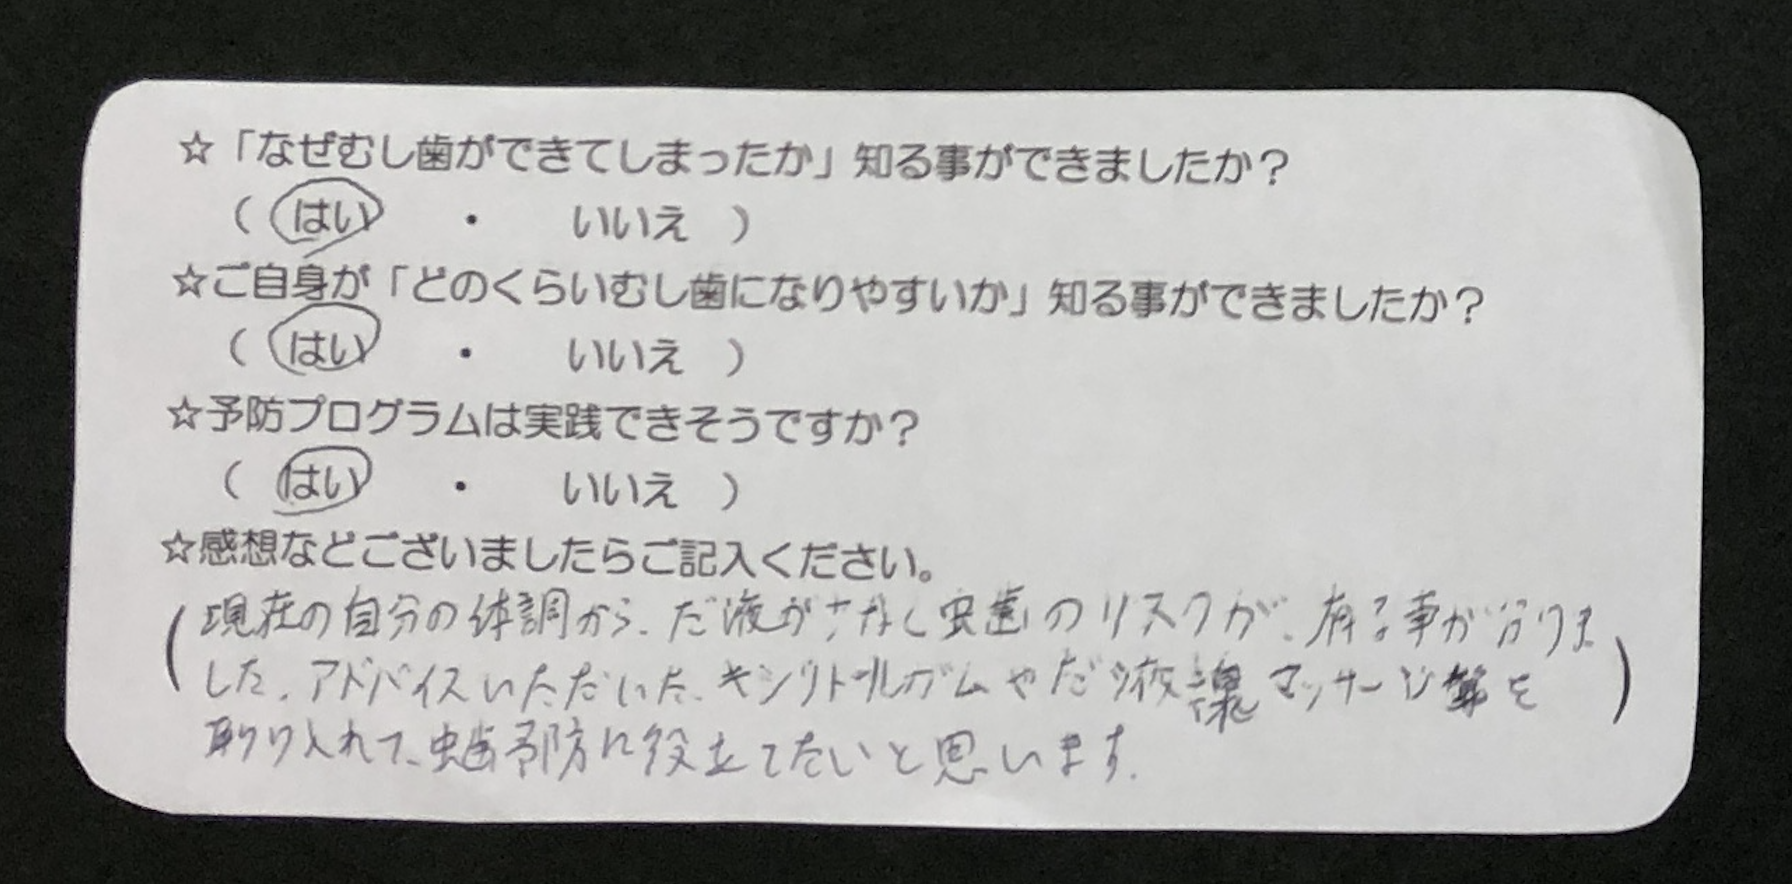 ☆「なぜむし歯ができてしまったか」知る事ができましたか？
（ はい ・ いいえ ）
☆ご自身が「どのくらいむし歯になりやすいか」知る事ができましたか？
（ はい ・ いいえ ）
☆予防プログラムは実践できそうですか？
（ はい ・ いいえ ）
☆感想などございましたらご記入ください。
（現在の自分の体調から、だ液が少なく虫歯のリスクが、有る事が分りま
した。アドバイスいただいた、キシリトールガムやだ液 マッサージ等を
取り入れて、虫歯予防に役立てたいと思います。）